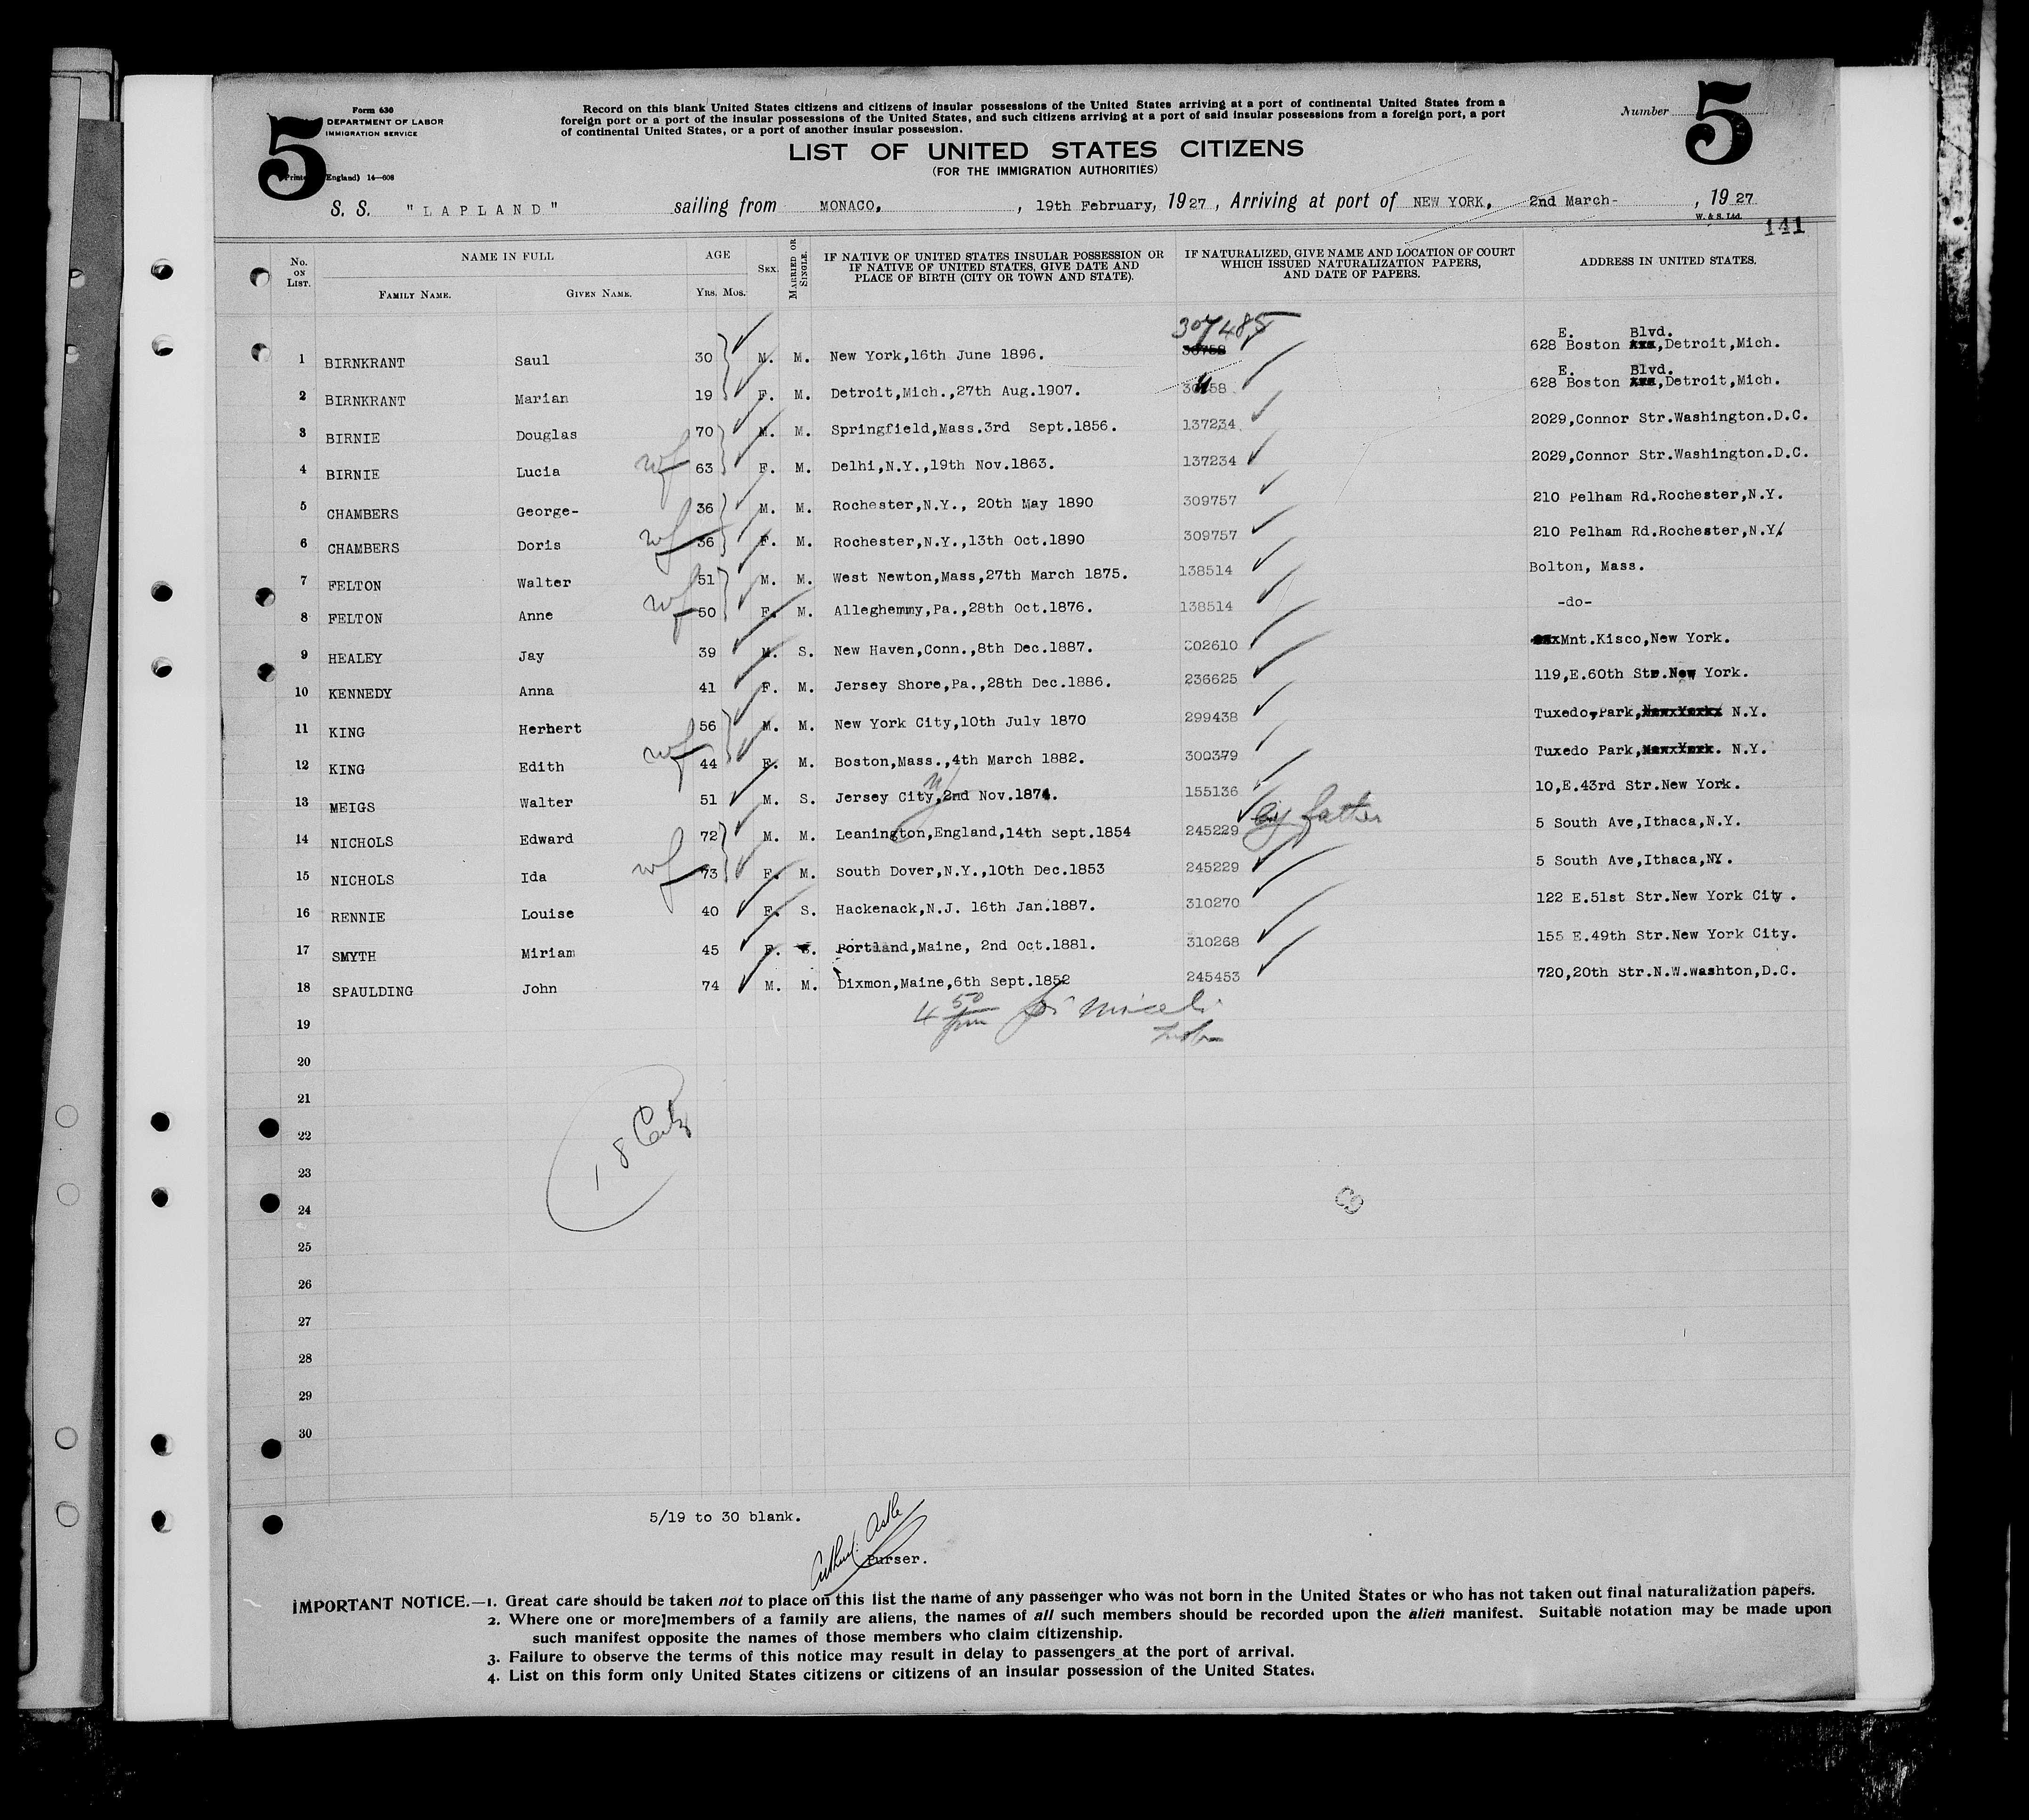 5
Form 630
DEPARTMENT OF LABOR
IMMIGRATION SERVICE
England) 14—608
Record on this blank United States citizens and citizens of insular possessions of the United States arriving at a port of continental United States from a
foreign port or a port of the insular possessions of the United States, and such citizens arriving at a port of said insular possessions from a foreign port, a port
of continental United States, or a port of another insular possession.
Number 5
LIST OF UNITED STATES CITIZENS
(FOR THE IMMIGRATION AUTHORITIES)
S. S. "LAPLAND" sailing from MONACO, , 19th February, 1927, Arriving at port of NEW YORK, 2nd March- , 1927
W. & S. Ltd.
141
No. ON LIST. NAME IN FULL FAMILY NAME. GIVEN NAME. AGE YRS. MOS. SEX. MARRIED OR SINGLE. IF NATIVE OF UNITED STATES INSULAR POSSESSION OR IF NATIVE OF UNITED STATES, GIVE DATE AND PLACE OF BIRTH (CITY OR TOWN AND STATE). IF NATURALIZED, GIVE NAME AND LOCATION OF COURT WHICH ISSUED NATURALIZATION PAPERS, AND DATE OF PAPERS. ADDRESS IN UNITED STATES.
307485
1 BIRNKRANT Saul 30 M. M. New York,16th June 1896. 30758 628 E. Boston Blvd.,Detroit,Mich.
2 BIRNKRANT Marian 19 F. M. Detroit,Mich.,27th Aug.1907. 628 E. Boston Blvd.,Detroit,Mich.
3 BIRNIE Douglas 70 M. M. Springfield,Mass.3rd Sept.1856. 137234 2029,Connor Str.Washington.D.C.
4 BIRNIE Lucia wf 63 F. M. Delhi,N.Y.,19th Nov.1863. 137234 2029,Connor Str.Washington.D.C.
5 CHAMBERS George- 36 M. M. Rochester,N.Y., 20th May 1890 309757 210 Pelham Rd.Rochester,N.Y.
6 CHAMBERS Doris wf 36 F. M. Rochester,N.Y.,13th Oct.1890 309757 210 Pelham Rd.Rochester,N.Y.
7 FELTON Walter 51 M. M. West Newton,Mass,27th March 1875. 138514 Bolton, Mass.
8 FELTON Anne wf 50 F. M. Alleghemmy,Pa.,28th Oct.1876. 138514 -do-
9 HEALEY Jay 39 M. S. New Haven,Conn.,8th Dec.1887. 302610 Mnt.Kisco,New York.
10 KENNEDY Anna 41 F. M. Jersey Shore,Pa.,28th Dec.1886. 236625 119,E.60th Str.New York.
11 KING Herbert 56 M. M. New York City,10th July 1870 299438 Tuxedo,Park, N.Y.
12 KING Edith wf 44 F. M. Boston,Mass.,4th March 1882. 300379 Tuxedo Park, N.Y.
13 MEIGS Walter 51 M. S. Jersey City,2nd Nov.1874. 155136 10,E.43rd Str.New York.
14 NICHOLS Edward 72 M. M. Leanington,England,14th Sept.1854 245229 by father 5 South Ave,Ithaca,N.Y.
15 NICHOLS Ida wf 73 F. M. South Dover,N.Y.,10th Dec.1853 245229 5 South Ave,Ithaca,NY.
16 RENNIE Louise 40 F. S. Hackenack,N.J. 16th Jan.1887. 310270 122 E.51st Str.New York City.
17 SMYTH Miriam 45 F. S. Portland,Maine, 2nd Oct.1881. 310268 155 E.49th Str.New York City.
18 SPAULDING John 74 M. M. Dixmon,Maine,6th Sept.1852 245453 720,20th Str.N.W.Washton,D.C.
19
4 50 pm
20
21
22
18
23
24
25
26
27
28
29
30
5/19 to 30 blank.
Purser.
IMPORTANT NOTICE.—1. Great care should be taken not to place on this list the name of any passenger who was not born in the United States or who has not taken out final naturalization papers.
2. Where one or more members of a family are aliens, the names of all such members should be recorded upon the alien manifest. Suitable notation may be made upon
such manifest opposite the names of those members who claim citizenship.
3. Failure to observe the terms of this notice may result in delay to passengers at the port of arrival.
4. List on this form only United States citizens or citizens of an insular possession of the United States.